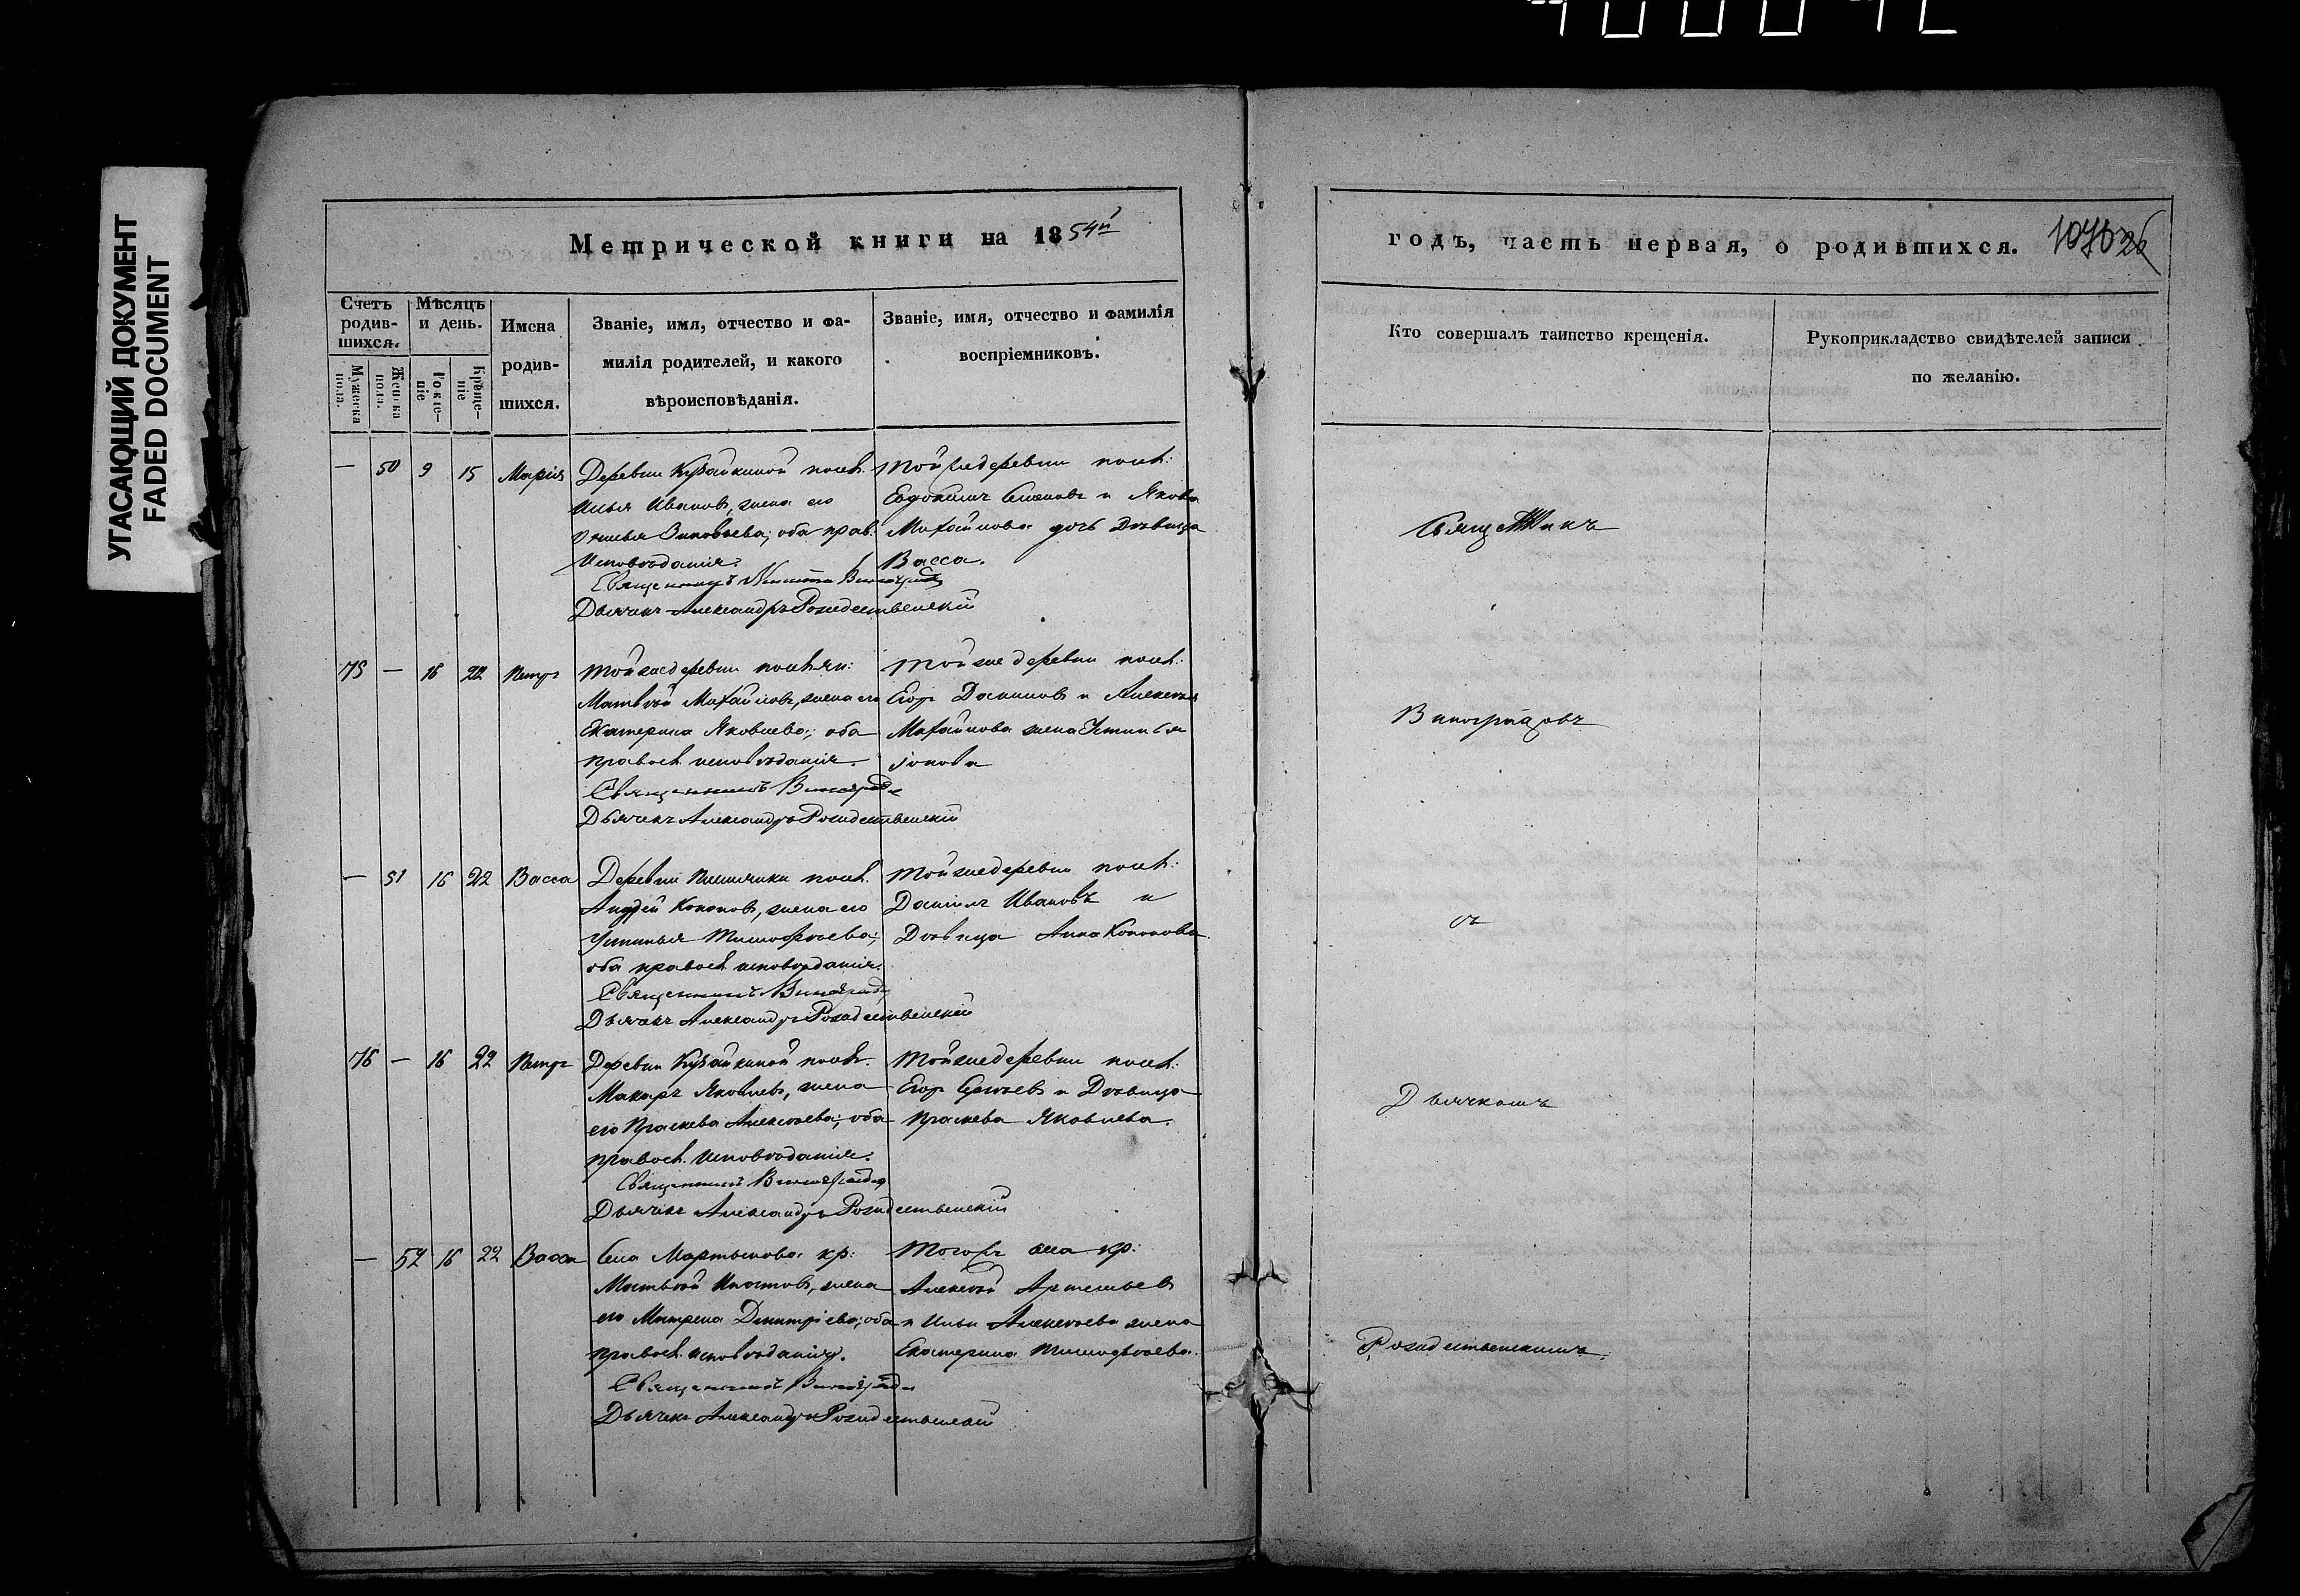 УГАСАЮЩИЙ ДОКУМЕНТ
FADED DOCUMENT
Метрической книги на 1854й
Счетъ родив-
шихся.
Мужеска пола.
Женска пола.
Мѣсяцъ
и день.
Рожде-
ніе
Креще-
ніе
Имена
родив-
шихся.
Званіе, имя, отчество и фа-
милія родителей, и какого
вѣроисповѣданія.
Званіе, имя, отчество и фамилія
воспріемниковъ.
— 50 9 15 Марія
Деревни посел.
Илья Ивановъ, жена его
Зиновьева; оба прав.
исповѣданія.
Священникъ Никита Виноградов
Дьячекъ Александръ Рождественскій
Той же деревни посел:
Евдокимъ Семеновъ и Якова
Михайлова дочь Дѣвица
Васса.
75 — 16 22 Петръ
Той же деревни поселян:
Матвѣй Михайловъ, жена его
Екатерина Яковлева; оба
правосл. исповѣданія.
Священникъ Виноградов
Дьячекъ Александръ Рождественскій
Той же деревни посел:
Егоръ Даниловъ и Алексѣя
Михайлова жена Устинья
— 51 16 22 Васса
Деревни посел.
Андрей Кононовъ, жена его
Устинья Тимофѣева;
оба правосл. исповѣданія.
Священникъ Виноградов
Дьячекъ Александръ Рождественскій
Той же деревни посел:
Даніилъ Ивановъ и
Дѣвица Анна Кононова.
76 — 16 22 Петръ
Деревни посел.
Макаръ Яковлевъ, жена
его Праскева Алексѣева; оба
правосл. исповѣданія.
Священникъ Виноградов
Дьячекъ Александръ Рождественскій
Той же деревни посел:
Егоръ Сергѣевъ и Дѣвица
Праскева Яковлева.
— 52 16 22 Васса
Села Мартынова кр:
Матвѣй Ипатовъ, жена
его Матрена Димитріева; оба
правосл. исповѣданія.
Священникъ Виноградов
Дьячекъ Александръ Рождественскій
Тогожъ села кр:
Алексѣй Артемьевъ
и Ильи Алексѣева жена
Екатерина Тимофѣева.
годъ, часть первая, о родившихся.
Кто совершалъ таинство крещенія.
Рукоприкладство свидѣтелей записи
по желанію.
Священникъ
Виноградовъ
съ
Дьячкомъ
Рождественскимъ.